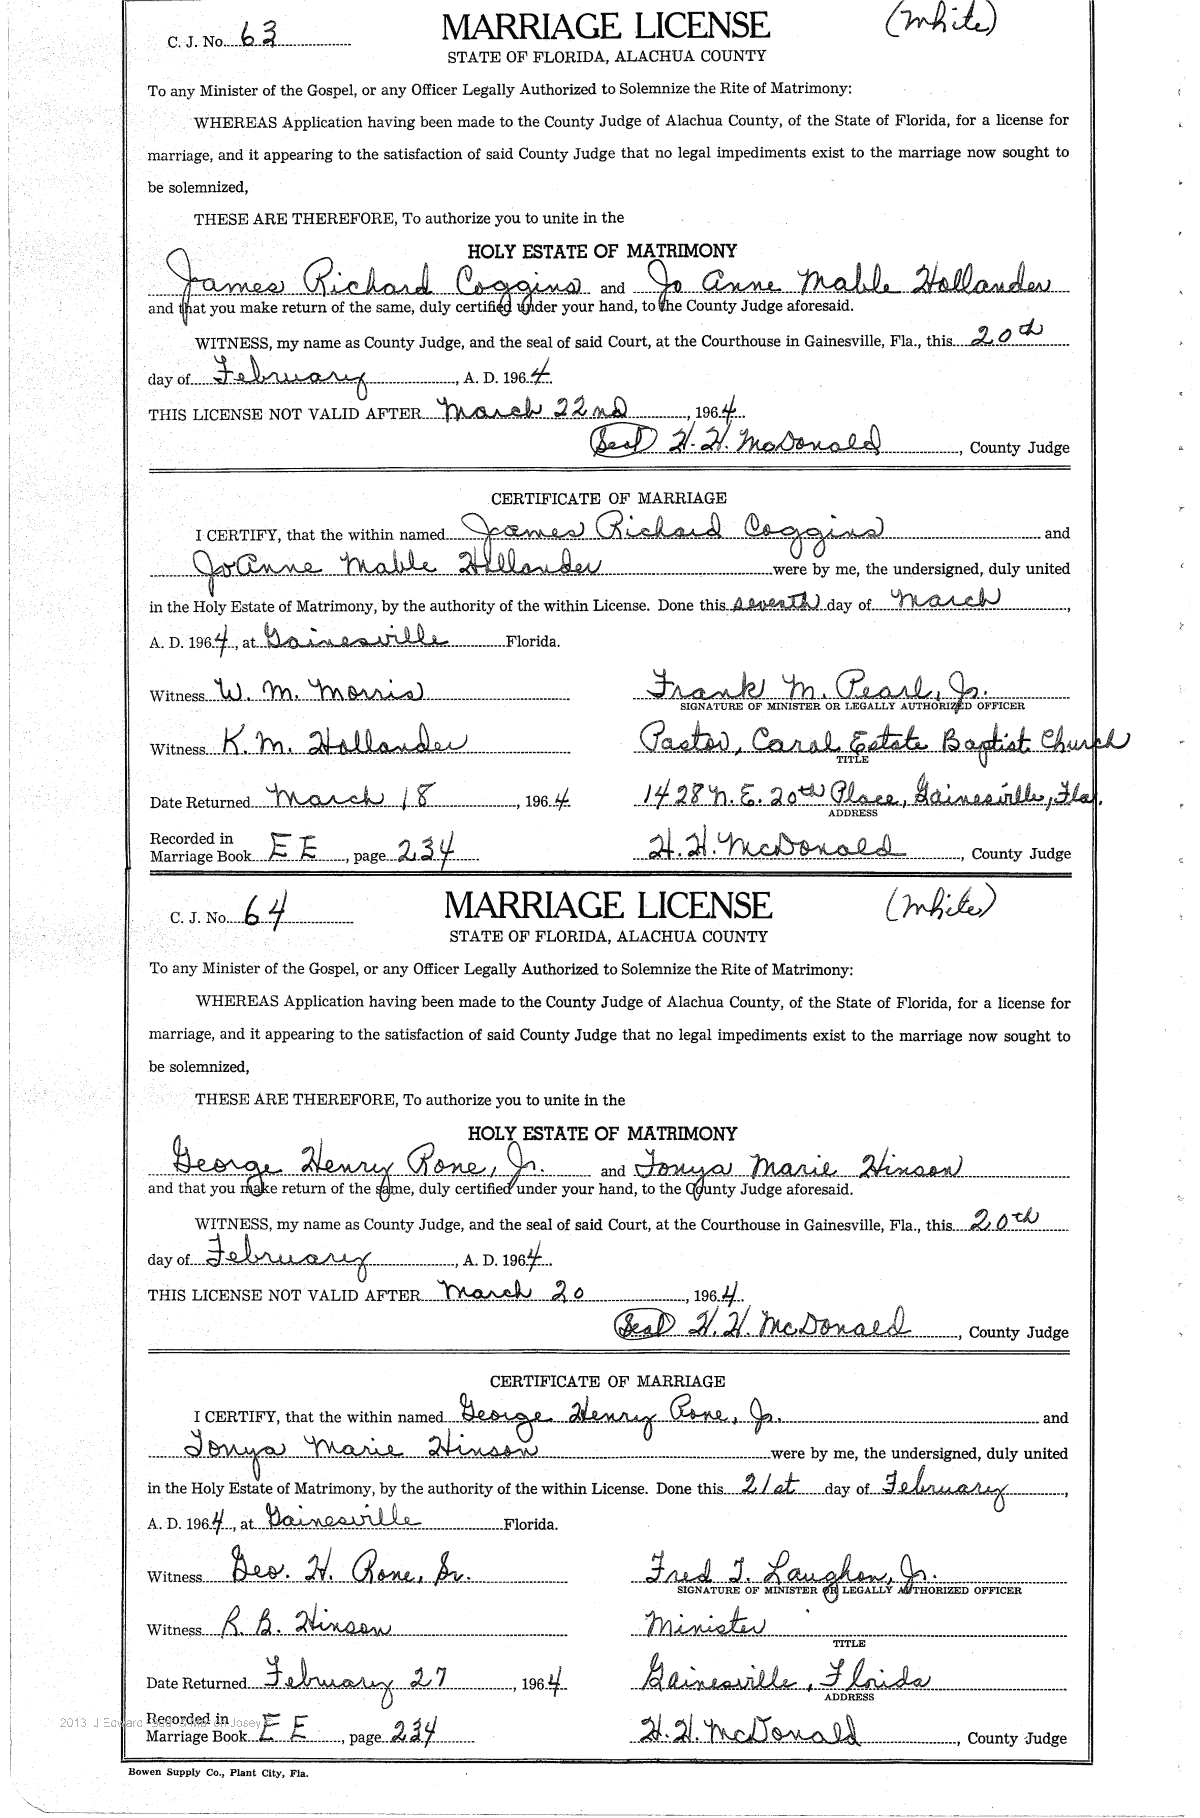 C. J. No. 63 MARRIAGE LICENSE (White)
STATE OF FLORIDA, ALACHUA COUNTY
To any Minister of the Gospel, or any Officer Legally Authorized to Solemnize the Rite of Matrimony:
WHEREAS Application having been made to the County Judge of Alachua County, of the State of Florida, for a license for
marriage, and it appearing to the satisfaction of said County Judge that no legal impediments exist to the marriage now sought to
be solemnized,
THESE ARE THEREFORE, To authorize you to unite in the
HOLY ESTATE OF MATRIMONY
James Richard Coggins and Jo Anne Mable Hollander
and that you make return of the same, duly certified under your hand, to the County Judge aforesaid.
WITNESS, my name as County Judge, and the seal of said Court, at the Courthouse in Gainesville, Fla., this 20th
day of February, A. D. 1964.
THIS LICENSE NOT VALID AFTER March 22nd, 1964.
(Seal) H. H. McDonald, County Judge
CERTIFICATE OF MARRIAGE
I CERTIFY, that the within named James Richard Coggins and
JoAnne Mable Hollander were by me, the undersigned, duly united
in the Holy Estate of Matrimony, by the authority of the within License. Done this seventh day of March,
A. D. 1964, at Gainesville Florida.
Witness W. M. Morris Frank M. Pearl, Jr.
SIGNATURE OF MINISTER OR LEGALLY AUTHORIZED OFFICER
Witness K. M. Hollander Pastor, Caral Estate Baptist Church
TITLE
Date Returned March 18, 1964 1428 N. E. 20th Place, Gainesville, Fla.
ADDRESS
Recorded in
Marriage Book EE, page 234 H. H. McDonald, County Judge
C. J. No. 64 MARRIAGE LICENSE (White)
STATE OF FLORIDA, ALACHUA COUNTY
To any Minister of the Gospel, or any Officer Legally Authorized to Solemnize the Rite of Matrimony:
WHEREAS Application having been made to the County Judge of Alachua County, of the State of Florida, for a license for
marriage, and it appearing to the satisfaction of said County Judge that no legal impediments exist to the marriage now sought to
be solemnized,
THESE ARE THEREFORE, To authorize you to unite in the
HOLY ESTATE OF MATRIMONY
George Henry Rone, Jr. and Tonya Marie Hinson
and that you make return of the same, duly certified under your hand, to the County Judge aforesaid.
WITNESS, my name as County Judge, and the seal of said Court, at the Courthouse in Gainesville, Fla., this 20th
day of February, A. D. 1964.
THIS LICENSE NOT VALID AFTER March 20, 1964.
(Seal) H. H. McDonald, County Judge
CERTIFICATE OF MARRIAGE
I CERTIFY, that the within named George Henry Rone, Jr. and
Tonya Marie Hinson were by me, the undersigned, duly united
in the Holy Estate of Matrimony, by the authority of the within License. Done this 21st day of February,
A. D. 1964, at Gainesville Florida.
Witness Geo. H. Rone, Sr. Fred T. Laughon, Jr.
SIGNATURE OF MINISTER OR LEGALLY AUTHORIZED OFFICER
Witness R. B. Hinson Minister
TITLE
Date Returned February 27, 1964 Gainesville, Florida
ADDRESS
2013 J Edward Josey
Recorded in
Marriage Book EE, page 234 H. H. McDonald, County Judge
Bowen Supply Co., Plant City, Fla.